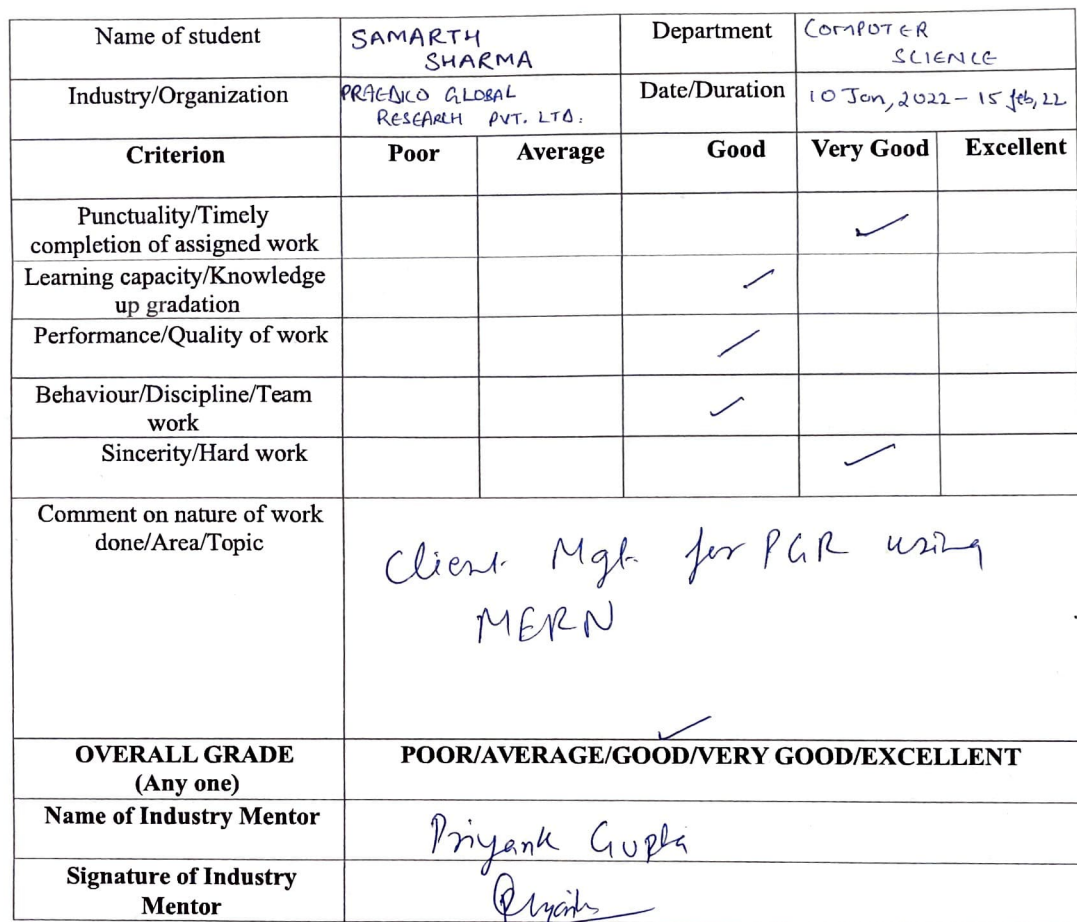 Name of student SAMARTH SHARMA Department COMPUTER SCIENCE
Industry/Organization PRAEDICO GLOBAL RESEARCH PVT. LTD. Date/Duration 10 Jan, 2022 - 15 feb, 22
Criterion Poor Average Good Very Good Excellent
Punctuality/Timely
completion of assigned work ✓
Learning capacity/Knowledge
up gradation ✓
Performance/Quality of work ✓
Behaviour/Discipline/Team
work ✓
Sincerity/Hard work ✓
Comment on nature of work
done/Area/Topic
Client Mgt. for PGR using
MERN
✓
OVERALL GRADE POOR/AVERAGE/GOOD/VERY GOOD/EXCELLENT
(Any one)
Name of Industry Mentor Priyank Gupta
Signature of Industry
Mentor